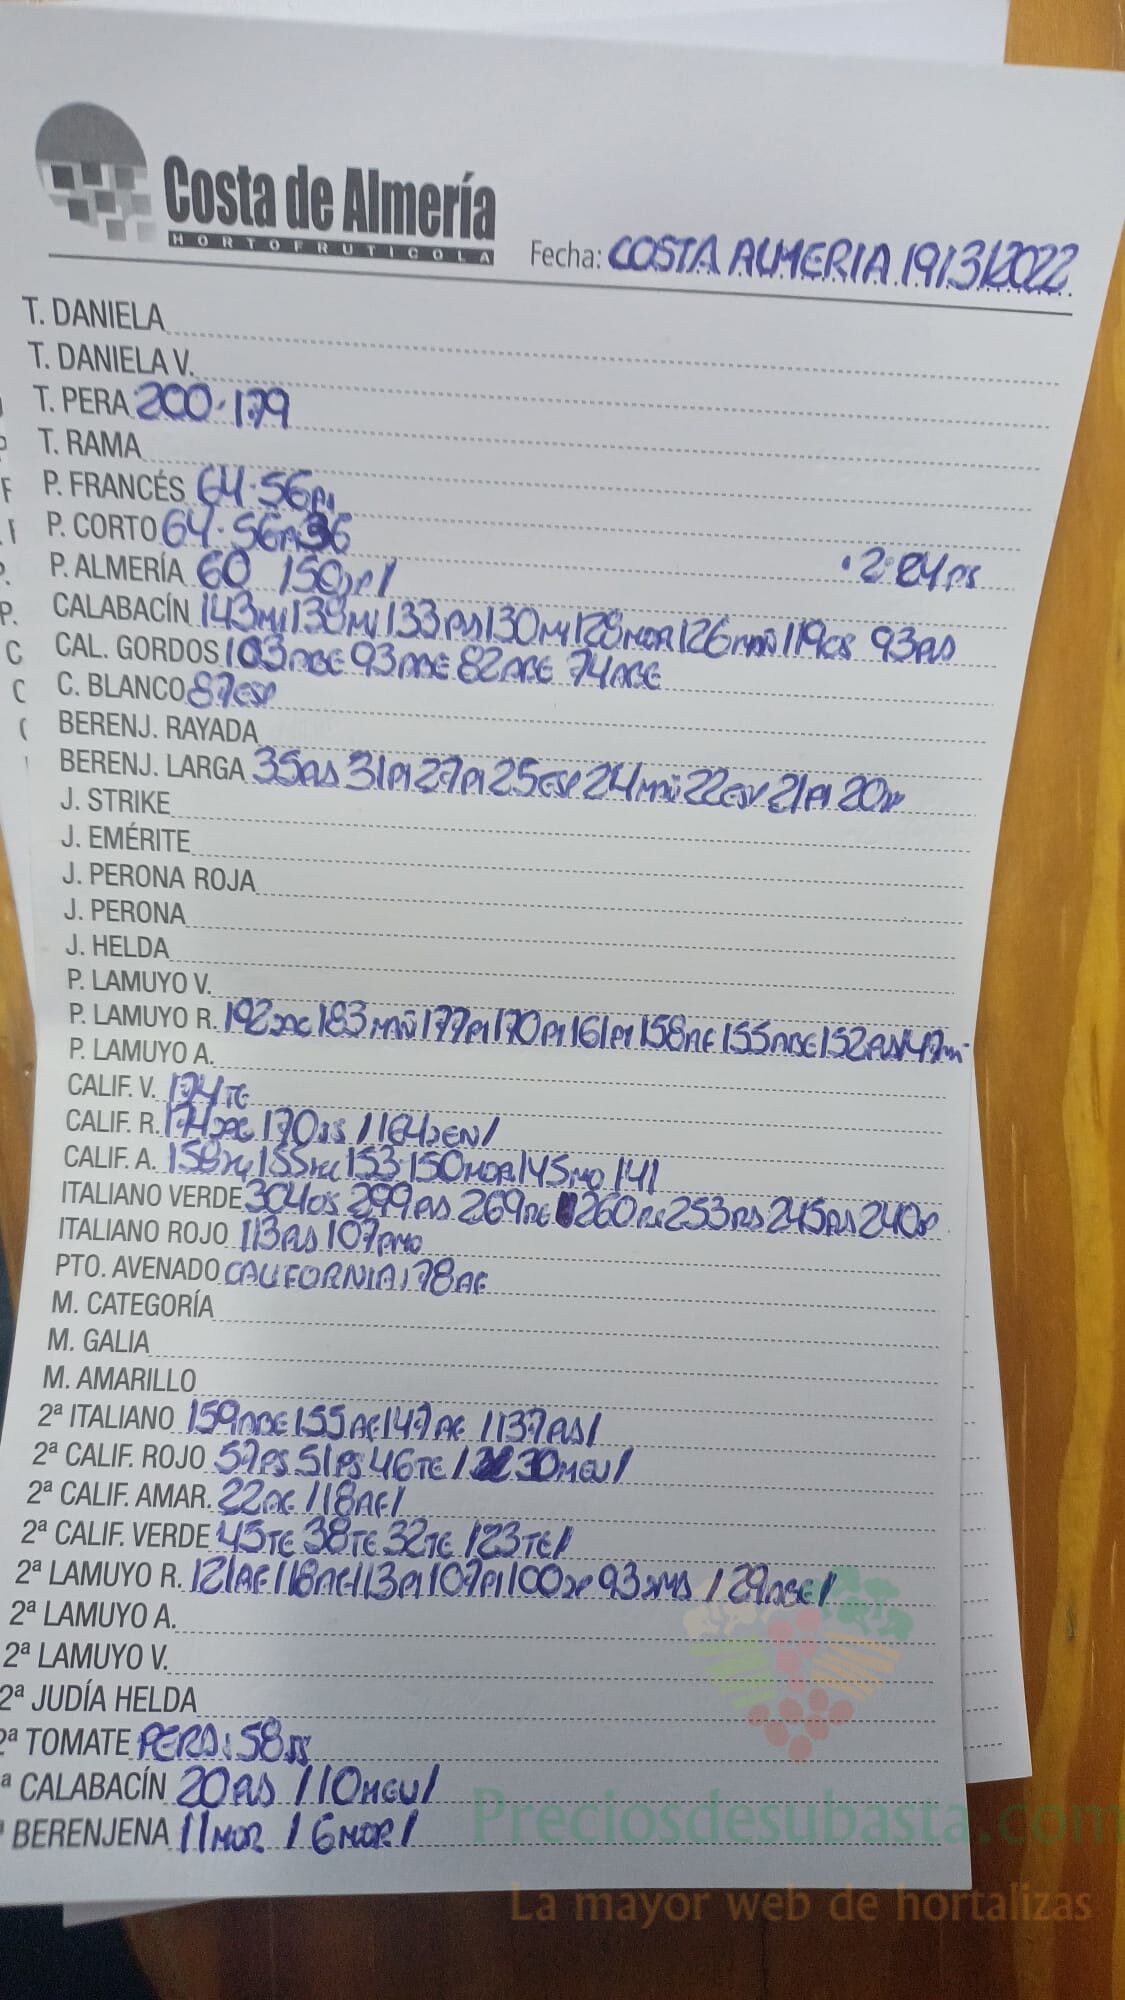 Costa de Almería
HORTOFRUTICOLA
Fecha: COSTA ALMERIA 19/3/2022
T. DANIELA
T. DANIELA V.
T. PERA 200·179
T. RAMA
P. FRANCÉS 64·56
P. CORTO 64·56
P. ALMERÍA 60 /150
CALABACÍN 143 138 133AS 130 128MOR 126MAÑ 119 93AS
CAL. GORDOS 103ABE 93ABE 82ABE 74ABE
C. BLANCO 87ESP
BERENJ. RAYADA
BERENJ. LARGA 35AS 31PI 27PI 25ESP 24MAÑ 22ESP 21PI 20
J. STRIKE
J. EMÉRITE
J. PERONA ROJA
J. PERONA
J. HELDA
P. LAMUYO V.
P. LAMUYO R. 192 183MAÑ 177PI 170PI 161PI 158AE 155ABE 152AS 147
P. LAMUYO A.
CALIF. V. 174TE
CALIF. R. 174 170 /164
CALIF. A. 158 155 153·150MOR 145 141
ITALIANO VERDE 304 299AS 269 260 253 245AS 240
ITALIANO ROJO 113AS 107
PTO. AVENADO CALIFORNIA: 78AE
M. CATEGORÍA
M. GALIA
M. AMARILLO
2ª ITALIANO 159ABE 155AE 147AE /137AS/
2ª CALIF. ROJO 57PS 51PS 46TE / 30MEU/
2ª CALIF. AMAR. 22AE /18AE/
2ª CALIF. VERDE 45TE 38TE 32TE /23TE/
2ª LAMUYO R. 121AE 118AE 113PI 107PI 100 93 /29ABE/
2ª LAMUYO A.
2ª LAMUYO V.
2ª JUDÍA HELDA
2ª TOMATE PERA: 58
ª CALABACÍN 20AS /10MEU/
BERENJENA 11MOR /6MOR/
Preciosdesubasta.com
La mayor web de hortalizas